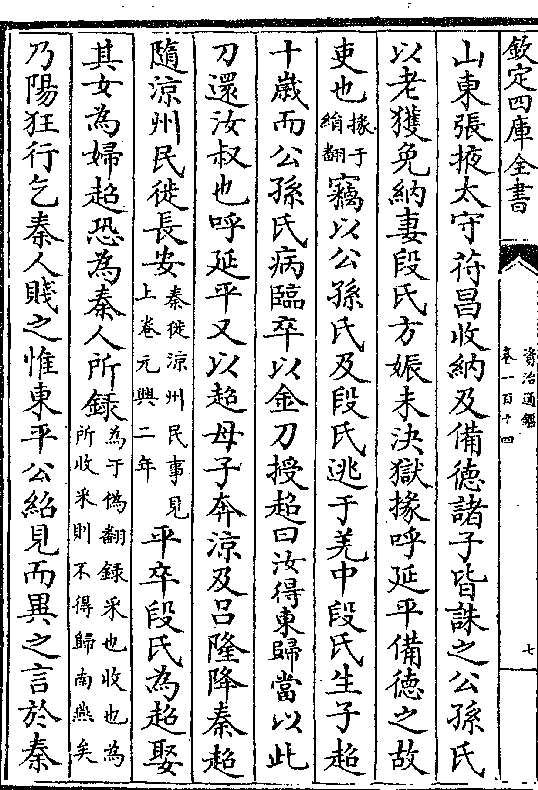 欽定四庫全書
資治通鑑
卷一百十四
七
山東張掖太守苻昌收納及備德諸子皆誅之公孫氏
以老獲免納妻段氏方娠未決獄掾呼延平備德之故
吏也掾于
絹翻竊以公孫氏及段氏逃于羌中段氏生子超
十歲而公孫氏病臨卒以金刀授超曰汝得東歸當以此
刀還汝叔也呼延平又以超母子奔涼及呂隆降秦超
隨涼州民徙長安秦徙涼州民事見
上卷元興二年平卒段氏為超娶
其女為婦超恐為秦人所録為于偽翻録采也收也為
所收采則不得歸南燕矣
乃陽狂行乞秦人賤之惟東平公紹見而異之言於秦